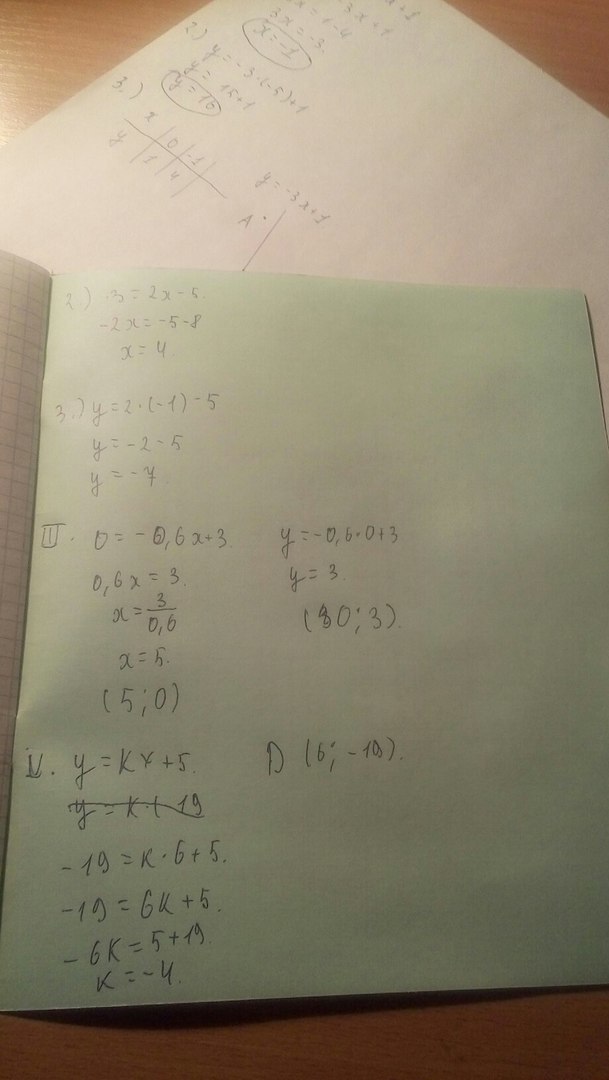 3x = -3
x = -1
2)
y = -3·(-5)+1
y = 15+1
y = 16
3.)
x | 0 | -1 |
y | 1 | 4 |
y = -3x+1
A
2.) 3 = 2x - 5.
-2x = -5-8
x = 4
3.) y = 2·(-1) - 5
y = -2 - 5
y = -7
III. 0 = -0,6x+3 y = -0,6·0+3
0,6x = 3. y = 3.
x = 3/0,6 (0;3).
x = 5.
(5;0)
IV. y = Kx+5. D (6; -19).
-19 = K·6+5.
-19 = 6K+5.
-6K = 5+19.
K = -4.